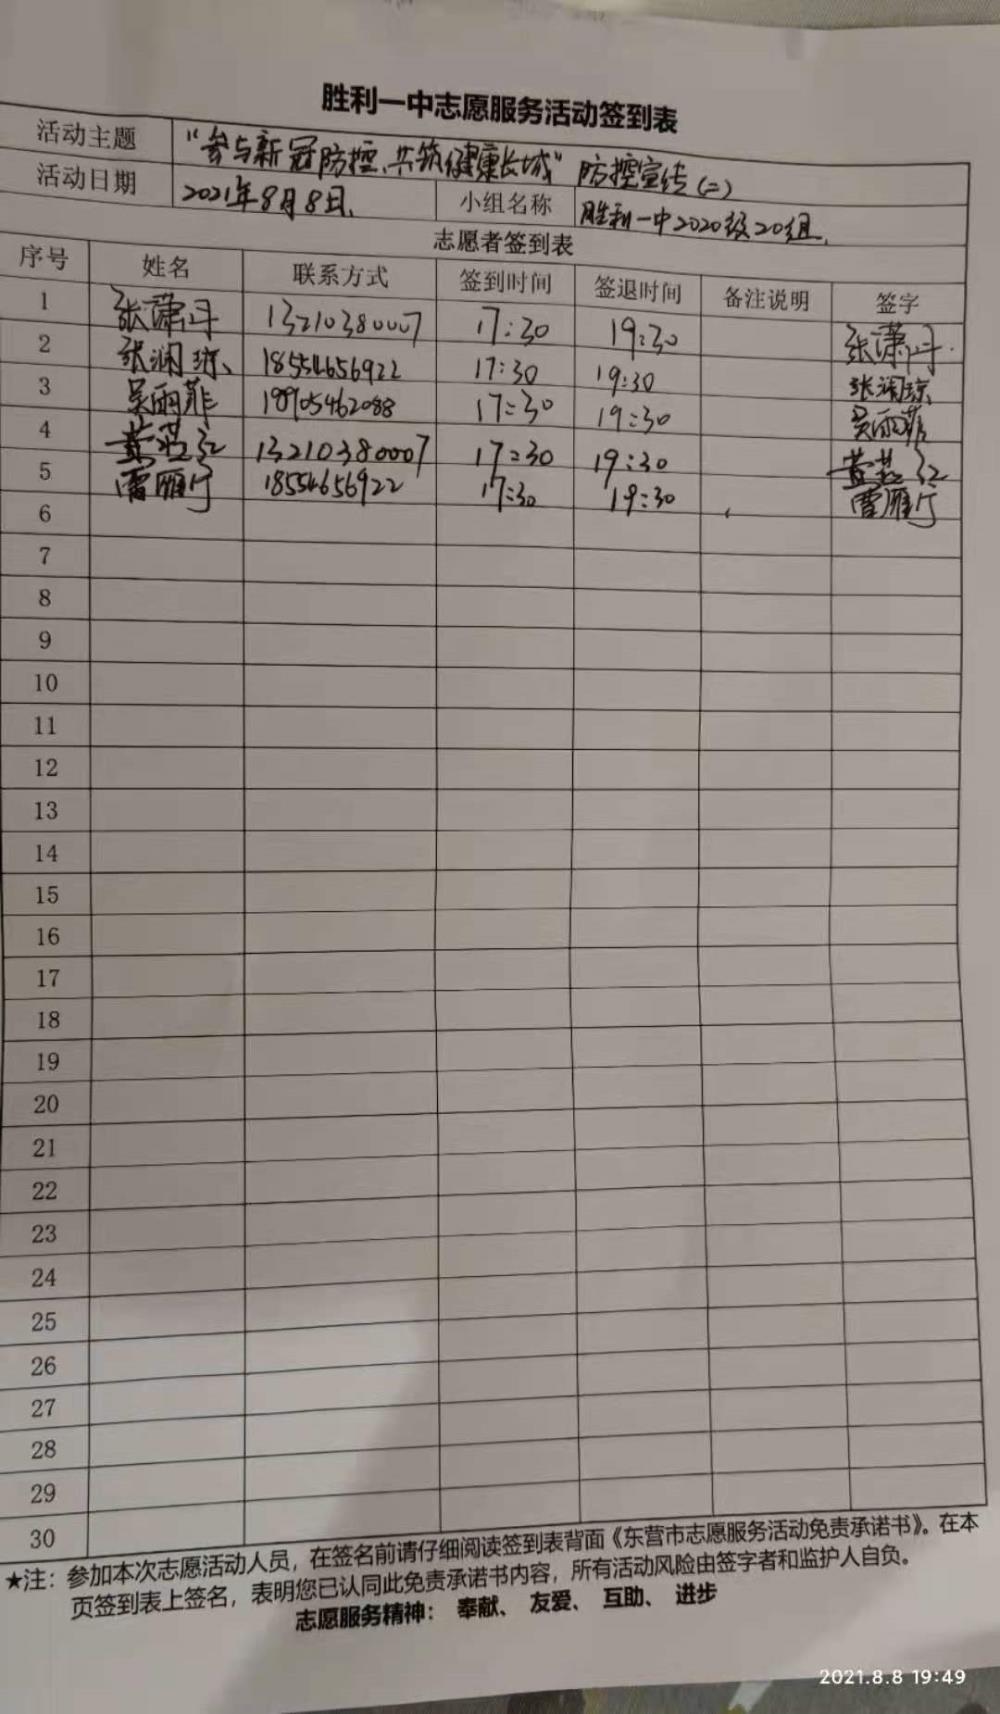 胜利一中志愿服务活动签到表
活动主题 "参与新冠防控,共筑健康长城"防控宣传(二)
活动日期 2021年8月8日. 小组名称 胜利一中2020级20组.
志愿者签到表
序号 姓名 联系方式 签到时间 签退时间 备注说明 签字
1 张潇丹 13210380007 17:30 19:30 张潇丹
2 张润琼 18554656922 17:30 19:30 张润琼
3 吴雨菲 18905462088 17:30 19:30 吴雨菲
4 13210380007 17:30 19:30
5 雷雁行 18554656922 17:30 19:30 雷雁行
6
7
8
9
10
11
12
13
14
15
16
17
18
19
20
21
22
23
24
25
26
27
28
29
30
★注：参加本次志愿活动人员，在签名前请仔细阅读签到表背面《东营市志愿服务活动免责承诺书》。在本
页签到表上签名，表明您已认同此免责承诺书内容，所有活动风险由签字者和监护人自负。
志愿服务精神： 奉献、 友爱、 互助、 进步
2021.8.8 19:49